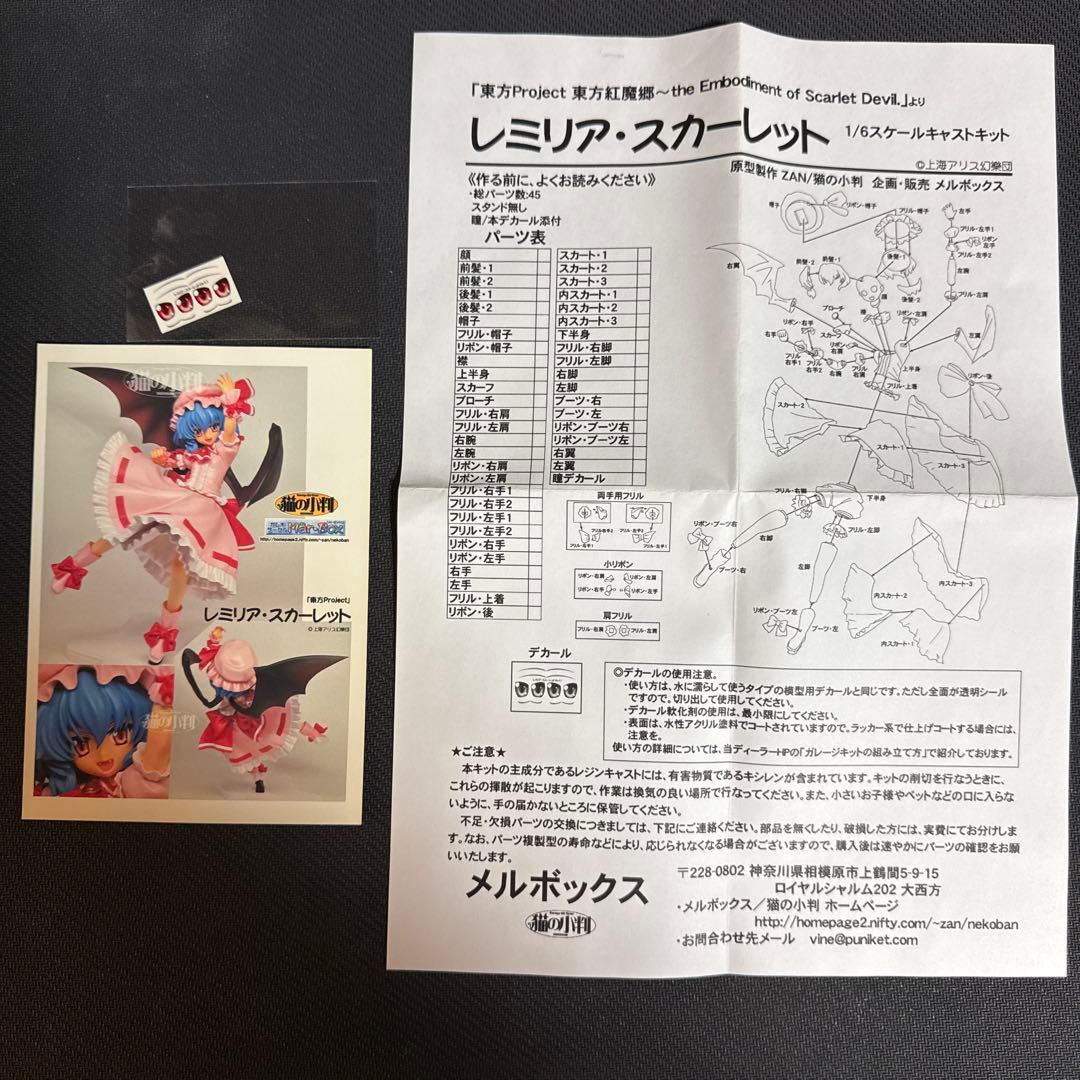 「東方Project 東方紅魔郷～the Embodiment of Scarlet Devil.」より
レミリア・スカーレット 1/6スケールキャストキット
©上海アリス幻樂団
原型製作 ZAN/猫の小判 企画・販売 メルボックス
《作る前に、よくお読みください》
・総パーツ数:45
スタンド無し
瞳/本デカール添付
パーツ表
顔
前髪・1
前髪・2
後髪・1
後髪・2
帽子
フリル・帽子
リボン・帽子
襟
上半身
スカーフ
ブローチ
フリル・右肩
フリル・左肩
右腕
左腕
リボン・右肩
リボン・左肩
フリル・右手1
フリル・右手2
フリル・左手1
フリル・左手2
リボン・右手
リボン・左手
右手
左手
フリル・上着
リボン・後
スカート・1
スカート・2
スカート・3
内スカート・1
内スカート・2
内スカート・3
下半身
フリル・右脚
フリル・左脚
右脚
左脚
ブーツ・右
ブーツ・左
リボン・ブーツ右
リボン・ブーツ左
右翼
左翼
瞳デカール
帽子
リボン・帽子
フリル・帽子
左手
フリル・左手1
リボン・左手
フリル・左手2
左腕
フリル・左肩
右翼
前髪・2
前髪・1
後髪・1
後髪・2
顔
ブローチ
襟
リボン・左肩
スカーフ
リボン・右手
右手
フリル・右手1
フリル・右手2
右腕
フリル・右肩
上半身
フリル・上着
左翼
リボン・後
スカート・2
スカート・1
スカート・3
フリル・右脚
下半身
リボン・ブーツ右
右脚
フリル・左脚
ブーツ・右
左脚
リボン・ブーツ左
ブーツ・左
内スカート・3
内スカート・2
内スカート・1
両手用フリル
フリル・右手2
フリル・左手2
フリル・右手1
フリル・左手1
小リボン
リボン・右肩
リボン・左肩
リボン・右手
リボン・左手
肩フリル
フリル・右肩
フリル・左肩
デカール
◎デカールの使用注意。
・使い方は、水に濡らして使うタイプの模型用デカールと同じです。ただし全面が透明シール
ですので。切り出して使用してください。
・デカール軟化剤の使用は、最小限にしてください。
・表面は、水性アクリル塗料でコートされていますので。ラッカー系で仕上げコートする場合には、
注意を。
使い方の詳細については、当ディーラーHPの「ガレージキットの組み立て方」で紹介しております。
★ご注意★
本キットの主成分であるレジンキャストには、有害物質であるキシレンが含まれています。キットの削切を行なうときに、
これらの揮散が起こりますので、作業は換気の良い場所で行なってください。また、小さいお子様やペットなどの口に入らな
いように、手の届かないところに保管してください。
不足・欠損パーツの交換につきましては、下記にご連絡ください。部品を無くしたり、破損した方には、実費にてお分けしま
す。なお、パーツ複製型の寿命などにより、応じられなくなる場合がございますので、購入後は速やかにパーツの確認をお願
いいたします。
メルボックス
猫の小判
〒228-0802 神奈川県相模原市上鶴間5-9-15
ロイヤルシャルム202 大西方
・メルボックス／猫の小判 ホームページ
http://homepage2.nifty.com/~zan/nekoban
・お問合わせ先メール vine@puniket.com
猫の小判
猫の小判
http://homepage2.nifty.com/~zan/nekoban
「東方Project」
レミリア・スカーレット
©上海アリス幻樂団
猫の小判